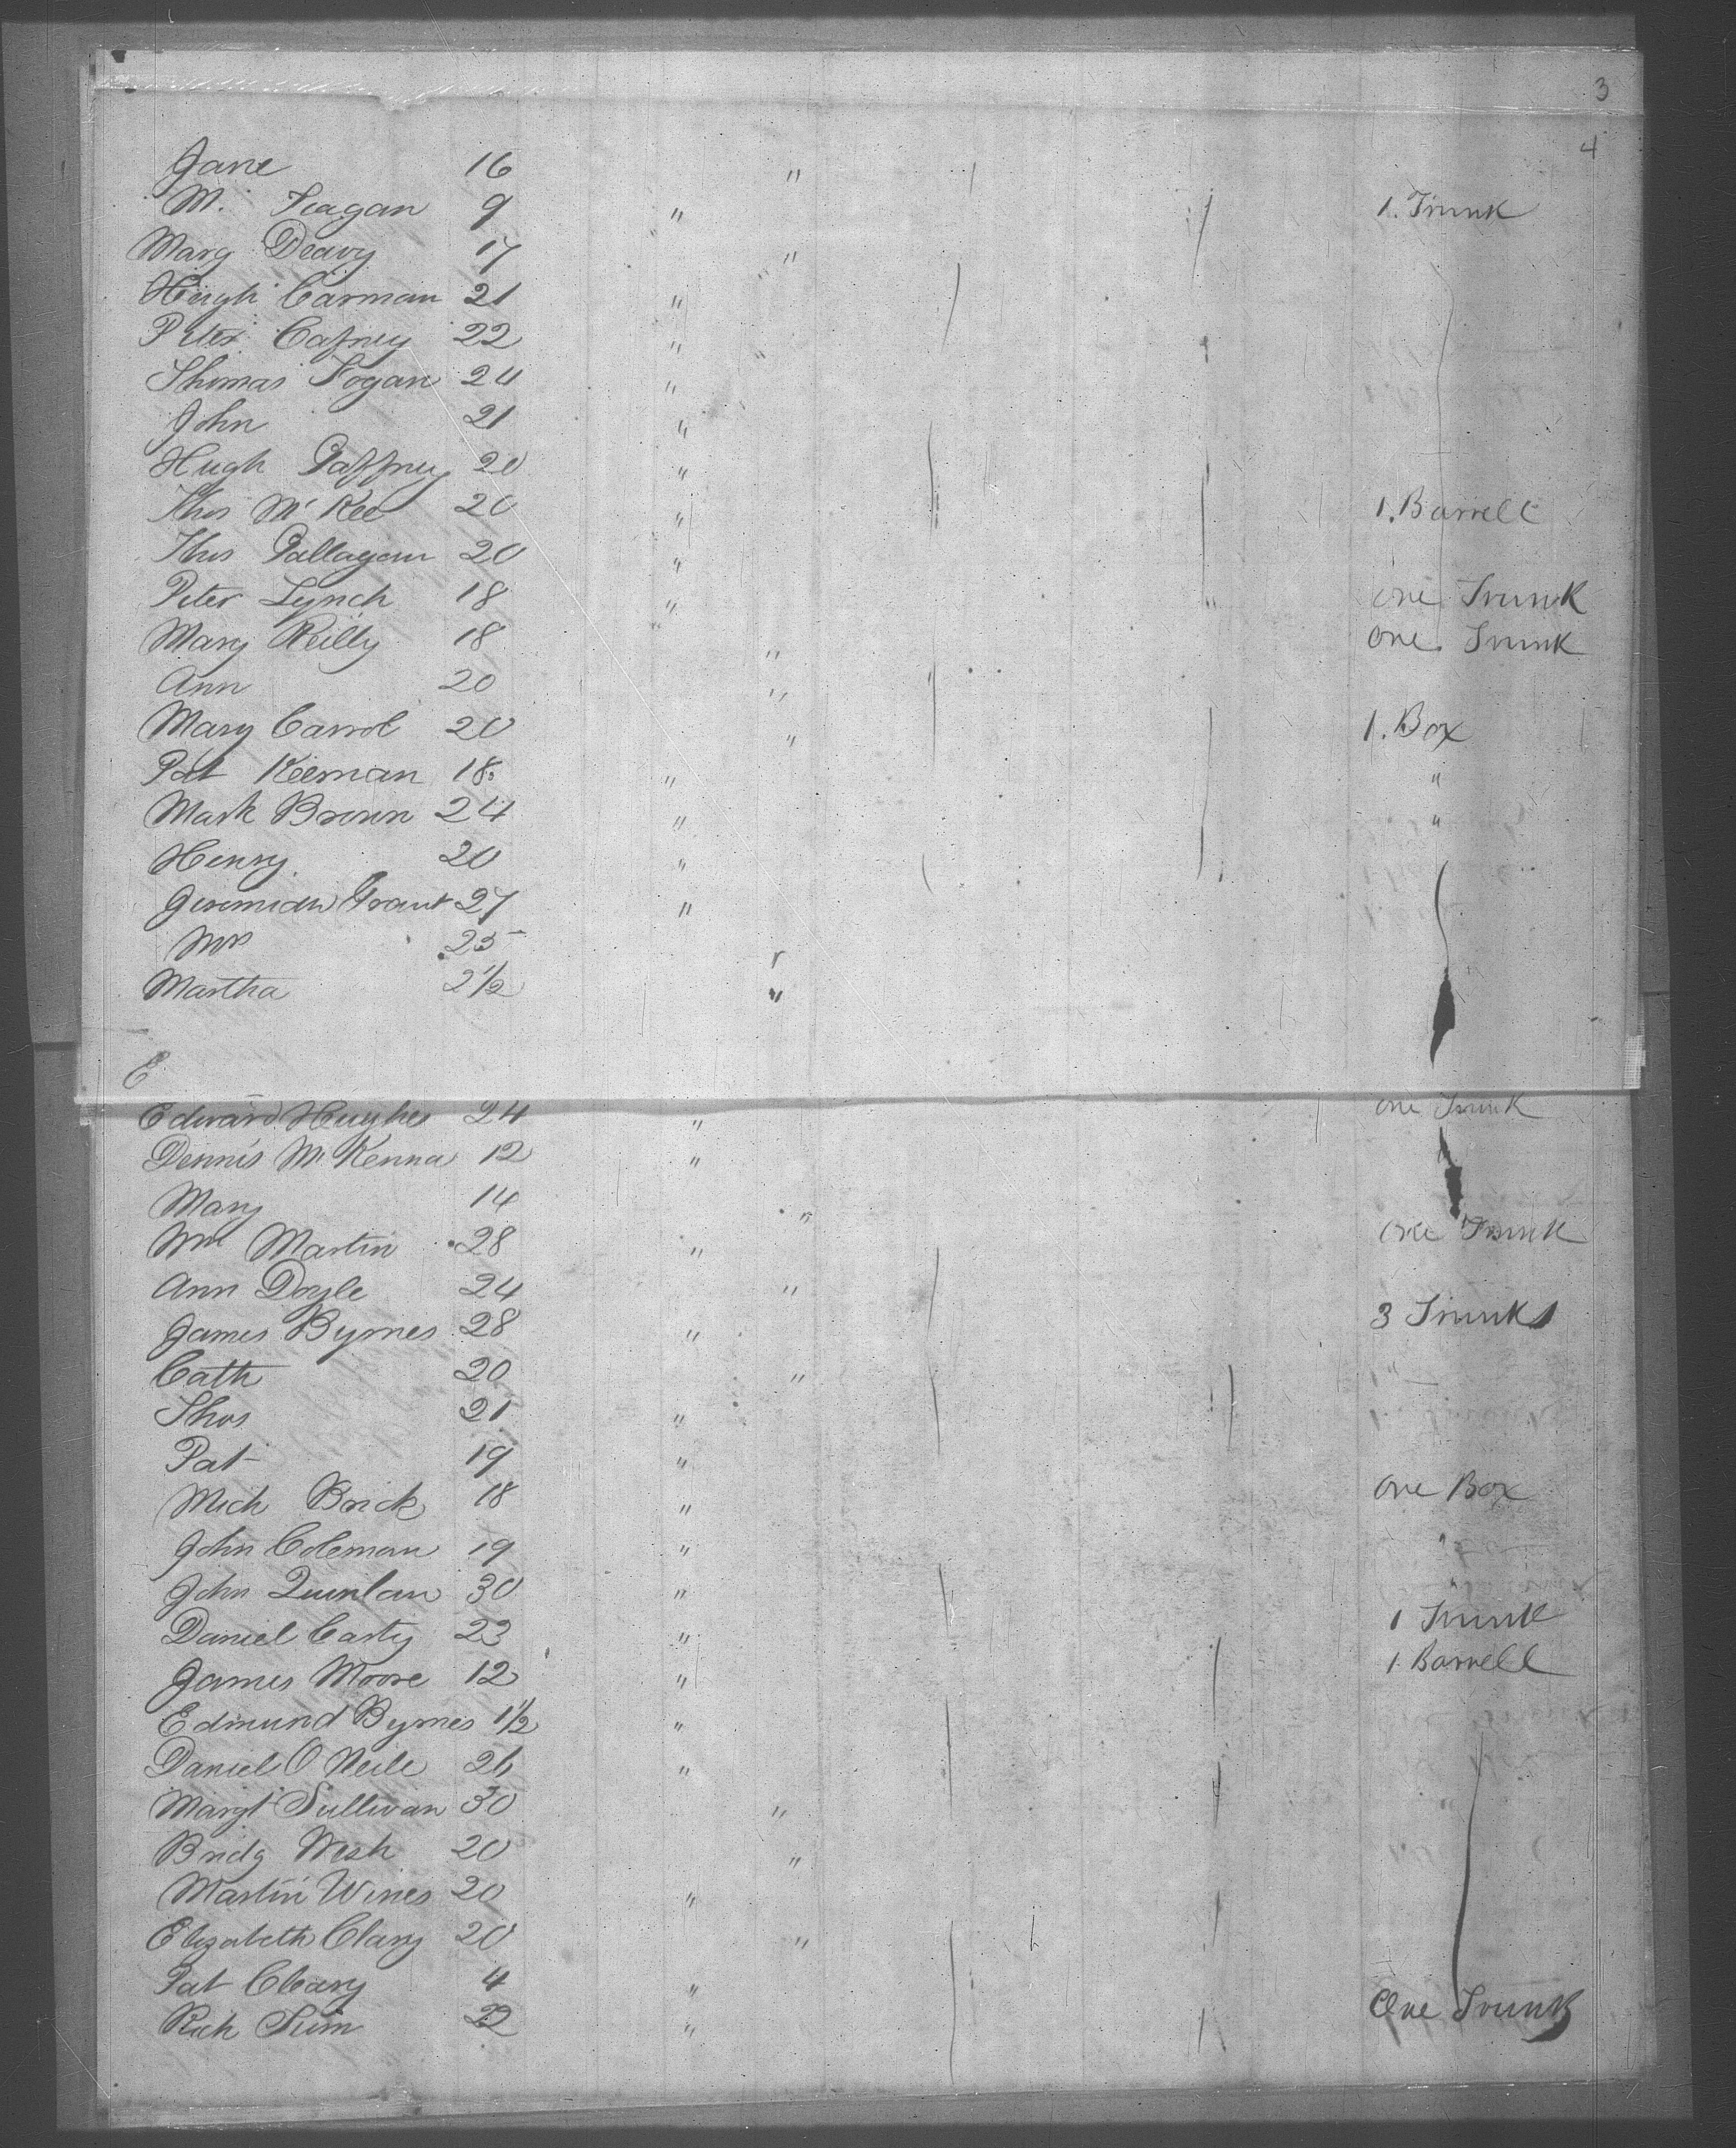 3
4
Jane 16 "
M. Feagan 9 " 1. Trunk
Marg Deavy 17 "
Hugh Carman 21 "
Peter Cafney 22 "
Thomas Fogan 24 "
John 21 "
Hugh Gaffney 20 "
Thos McKee 20 " 1. Barrell
Thos Gallagan 20 "
Peter Lynch 18 " " One Trunk
Mary Reilly 18 " One Trunk
Ann 20 "
Mary Carrol 20 " 1. Box
Pat Keernan 18 " "
Mark Brown 24 " "
Henry 20 "
Jeremiah Grant 27 "
Mrs 25 "
Martha 2 1/2 "
E
Edward Hughes 24 " One Trunk
Dennis McKenna 12 "
Mary 14 "
Wm Martin 28 " One Trunk
Ann Doyle 24 "
James Byrnes 28 " 3 Trunks
Cath 20 "
Thos 21 "
Pat 19 "
Mich Brick 18 " One Box
John Coleman 19 " "
John Quinlan 30 " "
Daniel Carty 23 " 1 Trunk
James Moore 12 " 1. Barrell
Edmund Byrnes 1 1/2 "
Daniel O Neile 26 "
Margt Sullivan 30 "
Bridg Wesh 20 "
Martin Wines 20 "
Elizabeth Clary 20 "
Pat Cleary 4 "
Rich 22 " One Trunk